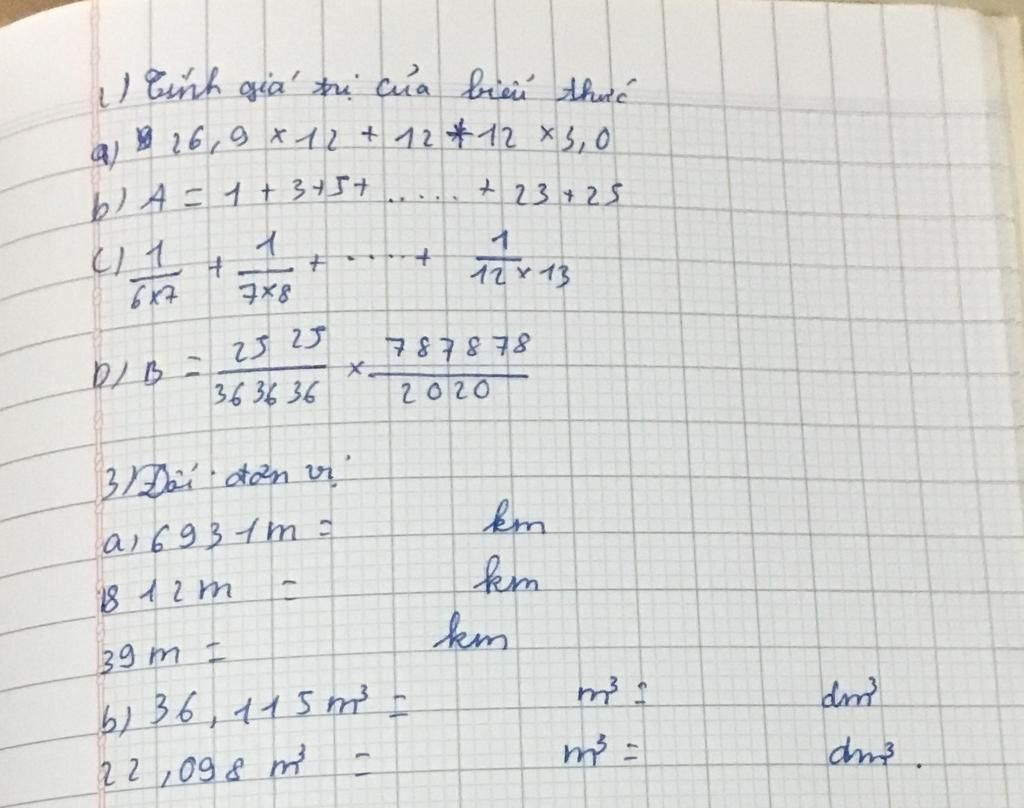 1) Tính giá trị của biểu thức
a) 26,9 × 12 + 12 + 12 × 3,0
b) A = 1 + 3 + 5 + ..... + 23 + 25
c) 1/6×7 + 1/7×8 + ..... + 1/12×13
D) B = 25 25/36 36 36 × 78 78 78/2020
3) Đổi đơn vị
a) 6931m = km
812m = km
39m = km
b) 36,115m³ = m³ = dm³
22,098m³ = m³ = dm³.